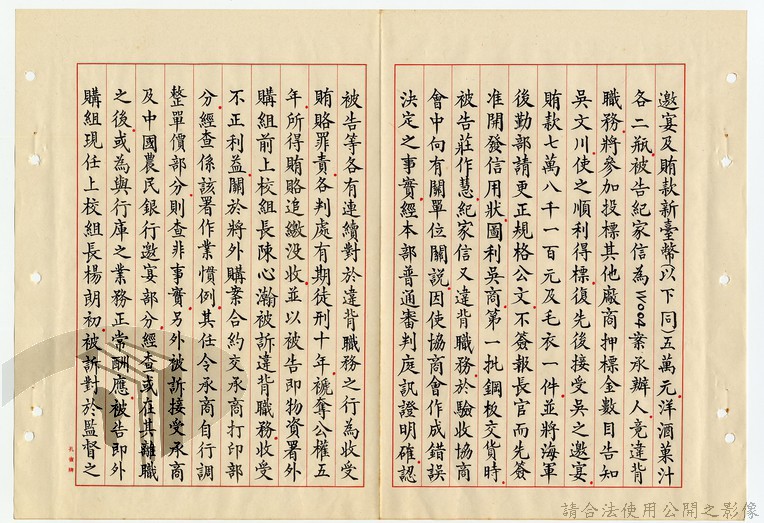 邀宴及賄款新臺幣(以下同)五萬元洋酒菓汁
各二瓶被告紀家信為W004案承辦人竟違背
職務將參加投標其他廠商押標金數目告知
吳文川使之順利得標復先後接受吳之邀宴
賄款七萬八千一百元及毛衣一件並將海軍
後勤部請更正規格公文不簽報長官而先簽
准開發信用狀圖利吳商第一批鋼板交貨時
被告莊作慧紀家信又違背職務於驗收協商
會中向有關單位關說因使協商會作成錯誤
決定之事實經本部普通審判庭訊證明確認
被告等各有連續對於違背職務之行為收受
賄賂罪責各判處有期徒刑十年褫奪公權五
年所得賄賂追繳沒收並以被告即物資署外
購組前上校組長陳心瀚被訴違背職務收受
不正利益關於將外購案合約交承商打印部
分經查係該署作業慣例其任令承商自行調
整單價部分則查非事實另外被訴接受承商
及中國農民銀行邀宴部分經查或在其離職
之後或為與行庫之業務正常酬應被告即外
購組現任上校組長楊朗初被訴對於監督之
請合法使用公開之影像